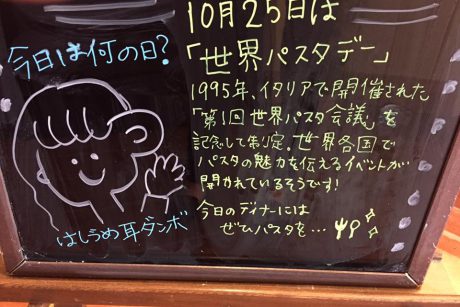 今日は何の日?
はしうめ耳ダンボ
10月25日は
「世界パスタデー」
1995年、イタリアで開催された
「第1回世界パスタ会議」を
記念して制定。世界各国で
パスタの魅力を伝えるイベントが
開かれているそうです!
今日のディナーには
ぜひパスタを…